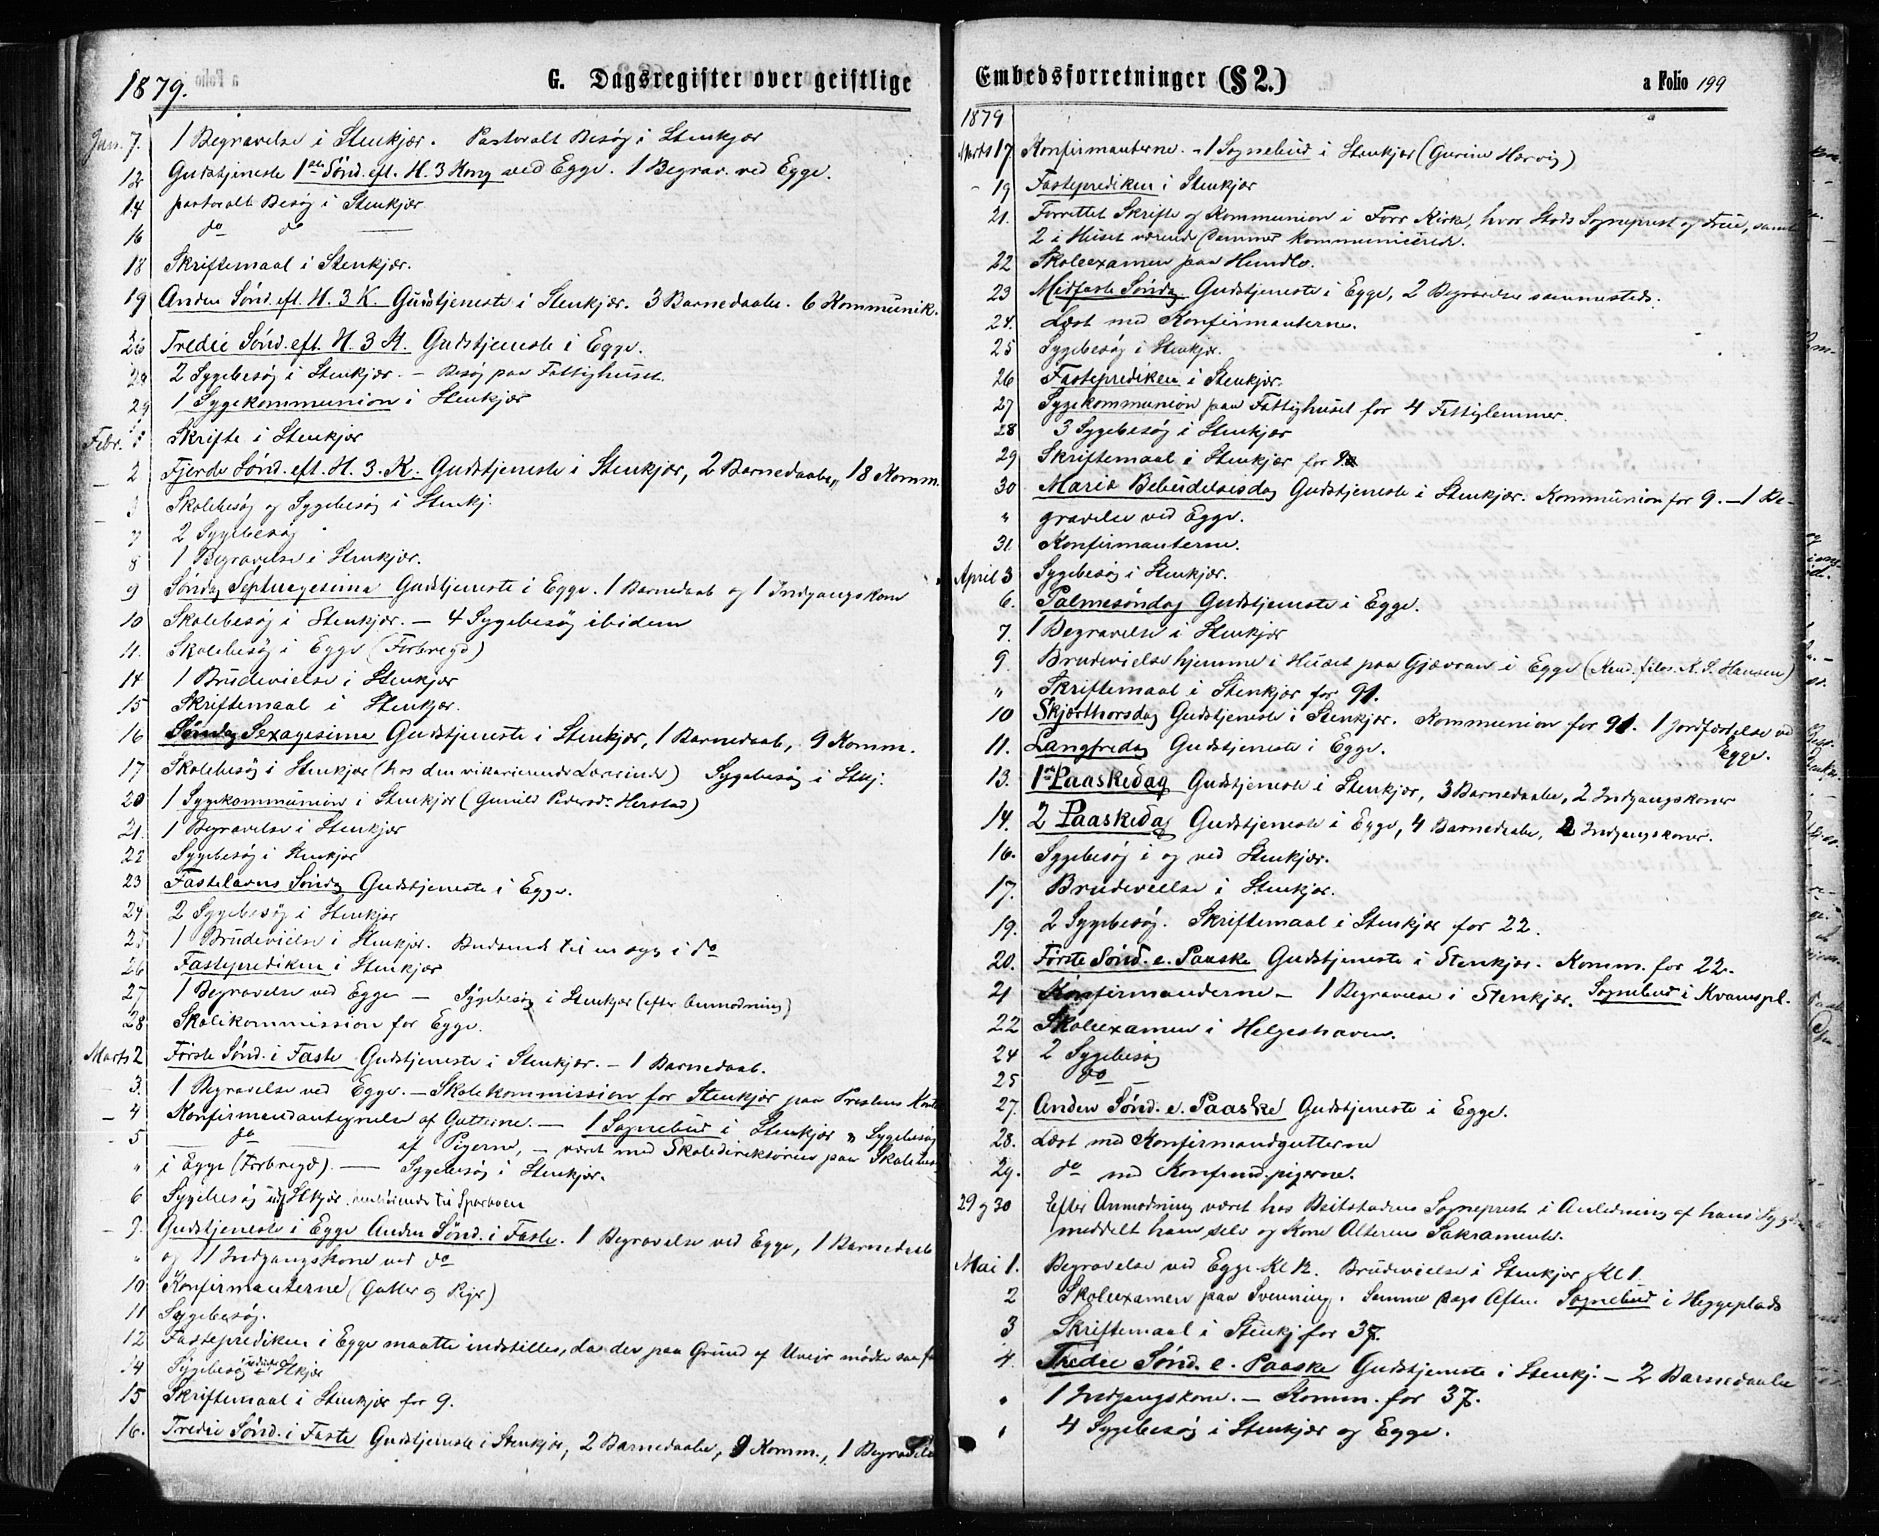 1879.
G. Dagsregister over geistlige
Jan. 7. 1 Begravelse i Stenkjær. Pastoralt Besøg i Stenkjær
12 Gudstjeneste 1ste Sønd. eft. H. 3 Kong ved Egge. 1 Begrav. ved Egge.
14 pastoralt Besøg i Stenkjær
16 do do
18 Skriftemaal i Stenkjær.
19 Anden Sønd. eft. H. 3 K. Gudstjeneste i Stenkjær. 3 Barnedaabe. 6 Kommunik.
26 Tredie Sønd. eft. H. 3 K. Gudstjeneste i Egge.
2 Sygebesøg i Stenkjær. – Besøg paa Fattighuset.
29 1 Sygekommunion i Stenkjær
Febr. 1 Skrifte i Stenkjær
2 Fjerde Sønd. eft. H. 3. K. Gudstjeneste i Stenkjær, 2 Barnedaabe, 18 Komm.
3 Skolebesøg og Sygebesøg i Stenkj.
7 2 Sygebesøg
8 1 Begravelse i Stenkjær.
9 Søndag Septuagesima Gudstjeneste i Egge. 1 Barnedaab og 1 Indgangskone
10 Skolebesøg i Stenkjær. – 4 Sygebesøg ibidem
11. Skolebesøg i Egge (Forbregd)
14 1 Brudevielse i Stenkjær
15 Skriftemaal i Stenkjær.
16 Søndag Sexagesima Gudstjeneste i Stenkjær, 1 Barnedaab, 9 Komm.
17 Skolebesøg i Stenkjær (hos den vikarierende Lærerinde) Sygebesøg i Stkj.
20 1 Sygekommunion i Stenkjær (Gunild Pedersdr Herstad)
21. 1 Begravelse i Stenkjær
22 Sygebesøg i Stenkjær
23 Fastelavns Søndag Gudstjeneste i Egge.
24 2 Sygebesøg i Stenkjær
25 1 Brudevielse i Stenkjær. Budsendt til en syg i do
26 Fasteprediken i Stenkjær
27 1 Begravelse ved Egge – Sygebesøg i Stenkjær (efter Anmodning)
28 Skolekommission for Egge.
Marts 2 Første Sønd. i Faste Gudstjeneste i Stenkjær. – 1 Barnedaab.
3. 1 Begravelse ved Egge. – Skolekommission for Stenkjær paa Prestens Kontor
4 Konfirmandantegnelse af Gutterne. – 1 Sognebud i Stenkjær & Sygebesøg
5 do af Pigerne, – været med Skoledirektøren paa
" i Egge (Forbregd). – Sygebesøg i Stenkjær.
6 Sygebesøg ved Stkjær henhørende til Sparboen
9. Gudstjeneste i Egge Anden Sønd. i Faste. 1 Begravelse ved Egge, 1 Barnedaab
" og 1 Indgangskone ved do
10 Konfirmanterne (Gutter og Piger)
11 Sygebesøg.
12 Fasteprediken i Egge maatte indstilles, da der paa Grund af Uveir mødte saa faa
14 Sygebesøg Stkjær
15 Skriftemaal i Stenkjær for 9.
16. Tredie Sønd. i Faste Gudstjeneste i Stenkjær, 2 Barnedaabe, 9 Komm., 1 Begravelse
Embedsforretninger (§ 2.)
a Folio 199
1879
Marts 17 Konfirmanterne. – 1 Sognebud i Stenkjær (Gurine Harvig)
19 Fasteprediken i Stenkjær
21. Forrettet Skrifte og Kommunion i Forr Kirke, hvor Stods Sogneprest og Frue, samt
2 i Huset værende Damer kommunicerede.
22 Skoleexamen paa Hundlo.
23 Midfaste Søndag Gudstjeneste i Egge, 2 Begravelser sammesteds.
24. Læst med Konfirmanterne.
25 Sygebesøg i Stenkjær.
26 Fasteprediken i Stenkjær.
27 Sygekommunion paa Fattighuset for 4 Fattiglemmer.
28 3 Sygebesøg i Stenkjær
29 Skriftemaal i Stenkjær for 9
30 Mariæ Bebudelsesdag Gudstjeneste i Stenkjær. Kommunion for 9. – 1 Be-
" gravelse ved Egge.
31 Konfirmanterne.
April 3 Sygebesøg i Stenkjær.
6. Palmesøndag Gudstjeneste i Egge.
7. 1 Begravelse i Stenkjær
9. Brudevielse hjemme i Huset paa Gjævran i Egge (Kand. filos. K. S. Hansen)
" Skriftemaal i Stenkjær for 91.
10 Skjærthorsdag Gudstjeneste i Stenkjær. Kommunion for 91. 1 Jordfæstelse ved
11. Langfredag Gudstjeneste i Egge. Egge.
13. 1ste Paaskedag Gudstjeneste i Stenkjær, 3 Barnedaabe, 2 Indgangskoner
14. 2 Paaskedag Gudstjeneste i Egge, 4 Barnedaabe, 2 Indgangskoner.
16. Sygebesøg i og ved Stenkjær.
17. Brudevielse i Stenkjær.
19. 2 Sygebesøg. Skriftemaal i Stenkjær for 22.
20. Første Sønd. e. Paaske Gudstjeneste i Stenkjær. Komm. for 22.
21 Konfirmanderne – 1 Begravelse i Stenkjær. Sognebud i Kvamspl.
22 Skoleexamen i Helgeshaven.
24 2 Sygebesøg
25 do
27. Anden Sønd. e. Paaske Gudstjeneste i Egge.
28. Læst med Konfirmandgutterne
29. do med Konfirmd.pigerne.
29 og 30 Efter Anmodning været hos Beitstadens Sogneprest i Anledning af hans Sygdom
meddelt ham selv og Kone Alterens Sakramente.
Mai 1. Begravelse ved Egge Kl 12. Brudevielse i Stenkjær Kl 1.
2 Skoleexamen paa Svenning. Samme Dags Aften Sognebud i Heggeplads
3 Skriftemaal i Stenkj for 37.
4. Tredie Sønd. e. Paaske Gudstjeneste i Stenkj. – 2 Barnedaabe
" 1 Indgangskone. – Komm. for 37.
" 4 Sygebesøg i Stenkjær og Egge.